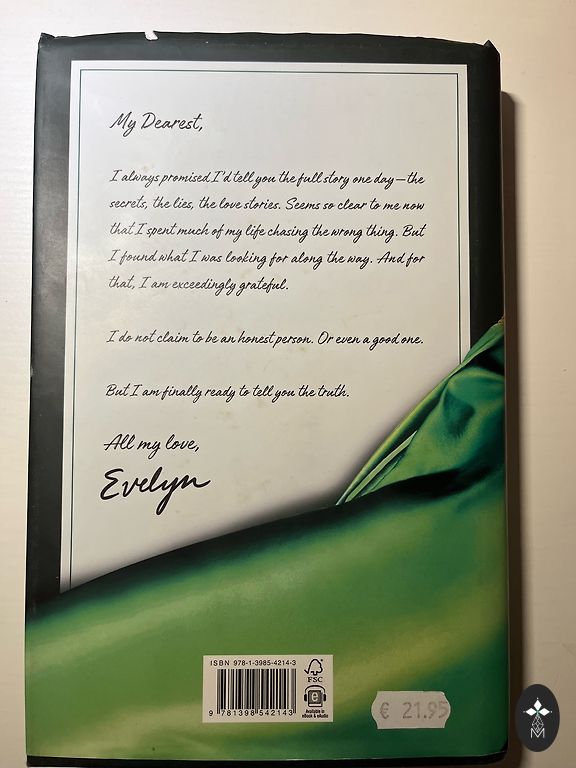 My Dearest,
I always promised I'd tell you the full story one day—the
secrets, the lies, the love stories. Seems so clear to me now
that I spent much of my life chasing the wrong thing. But
I found what I was looking for along the way. And for
that, I am exceedingly grateful.
I do not claim to be an honest person. Or even a good one.
But I am finally ready to tell you the truth.
All my love,
Evelyn
ISBN 978-1-3985-4214-3
FSC
e
Available in
eBook & eAudio
9 781398 542143
€ 21.95
M